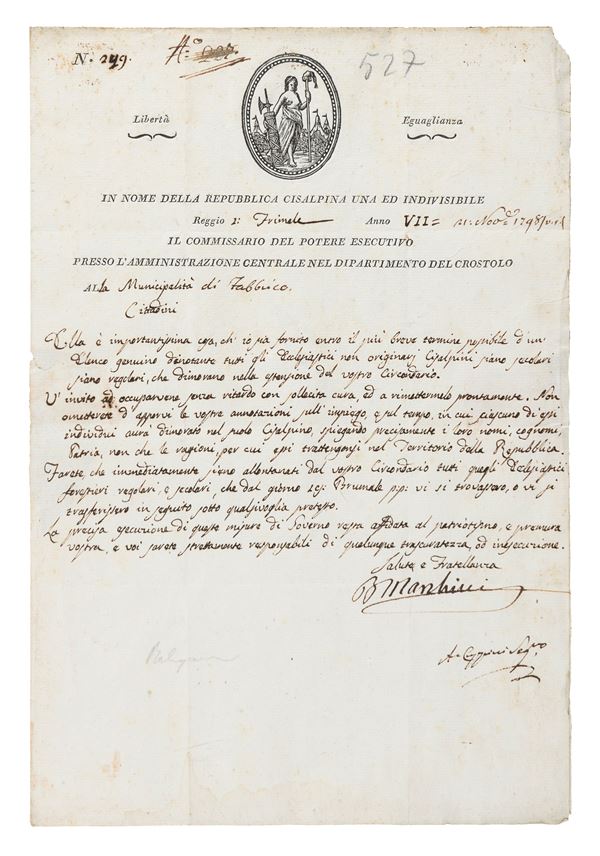 N.o 249.
A.o 527
Libertà Eguaglianza
IN NOME DELLA REPUBBLICA CISALPINA UNA ED INDIVISIBILE
Reggio 1: Frimele Anno VII = 21. Nov.e 1798 /v.s/
IL COMMISSARIO DEL POTERE ESECUTIVO
PRESSO L'AMMINISTRAZIONE CENTRALE NEL DIPARTIMENTO DEL CROSTOLO
ALla Municipalità di Fabbrico.
Cittadini
Ella è importantissima cosa, ch' io sia fornito entro il più breve termine possibile d'un
Elenco genuino denotante tutti gli Ecclesiastici non originarj Cisalpini siano secolari
siano regolari, che dimorano nella estensione del vostro Circondario.
V' invito ad occuparvene senza ritardo con sollecita cura, ed a rimettermelo prontamente. Non
ometterete d' apporvi le vostre annotazioni sull' impiego, e sul tempo, in cui ciascuno di essi
individui avrà dimorato nel suolo Cisalpino, spiegando precisamente i loro nomi, cognomi,
Patria, non che le ragioni, per cui essi trattengonsi nel Territorio della Repubblica.
Farete, che immediatamente siano allontanati dal vostro Circondario tutti quegli Ecclesiastici
forestieri regolari, e secolari, che dal giorno Brumale p.p. vi si trovassero, o vi si
trasferissero in seguito sotto qualsivoglia pretesto.
La precisa esecuzione di queste misure di Governo resta affidata al patriotismo, e premura
vostra, e voi sarete strettamente responsabili di qualunque trascuratezza, od inesecuzione.
Salute e Fratellanza